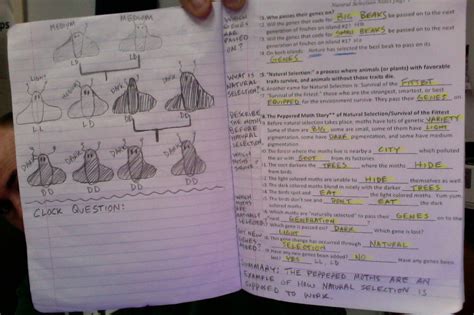 MEDIUM MEDIUM
LIGHT DARK DARK DARK
LL LD LD DD
DARK DARK DARK DARK
DD DD DD DD
CLOCK QUESTION:
WHICH
GENES
ARE
PASSED
ON?
WHAT IS
NATURAL
SELECTION?
DESCRIBE
MOTHS
BEFORE
NATURAL
SELECTION.
WHICH
MOTHS
ARE
NATURALLY
SELECTED?
Natural Selection Notes page
1. Who passes their genes on?
Will the genes that code for BIG BEAKS be passed on to the next
generation of finches on island #2? YES
Will the genes that code for SMALL BEAKS be passed on to the next
generation of finches on island #2? NO
On both islands: Nature has selected the best beak to pass on its
GENES
"Natural Selection" a process where animals (or plants) with favorable
traits survive, and animals without those traits die.
Another name for Natural Selection is Survival of the FITTEST
"Survival of the fittest" those who are the strongest, smartest, or best
EQUIPPED for the environment survive. They pass their GENES on
The Peppered Moth Story** of Natural Selection/Survival of the Fittest
Before natural selection takes place, moths have lots of genetic VARIETY
Some of them are BIG, some are small, some of them have LIGHT
pigmentation, some have DARK pigmentation, and some have medium
pigmentation
The forest where the moths live is nearby a CITY which polluted
the air with SOOT from its factories.
The soot darkens the TREES where the moths HIDE
from birds.
The light colored moths are unable to HIDE themselves as well.
The dark colored moths blend in nicely with the darker TREES
The birds spot and EAT the light colored moths. Yum yum
The birds don't see and DON'T EAT the dark
colored moths.
Which moths are "naturally selected" to pass their GENES on to the
next GENERATION? DARK
Which gene is passed? DARK Which gene is lost?
LIGHT
This gene change has occurred through NATURAL
SELECTION
Have any new genes been added? NO Have any genes been
lost? YES LL, LD
SUMMARY: THE PEPPERED MOTHS ARE AN
EXAMPLE OF HOW NATURAL SELECTION IS
SUPPOSED TO WORK.